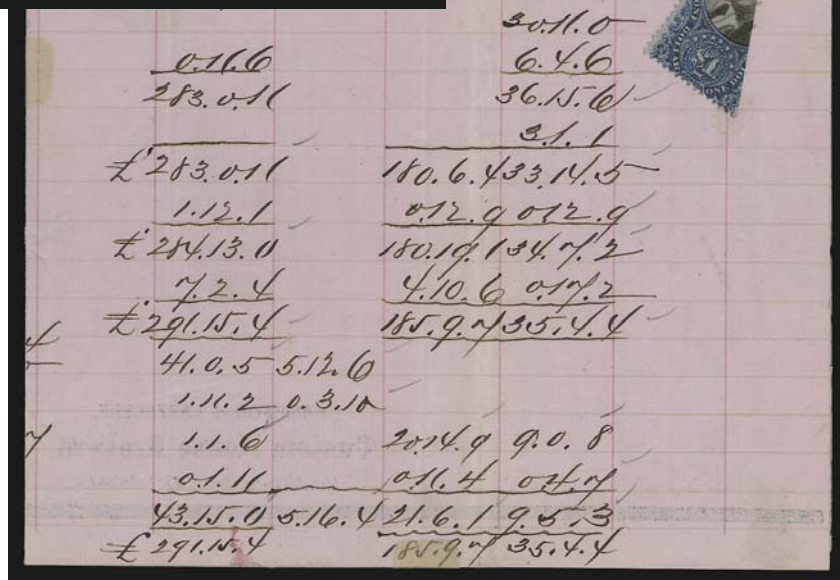 30.11.0
0.11.6 6.4.6
283.0.11 36.15.6
3.1.1
£ 283.0.11 180.6.4 33.14.5
1.12.1 0.12.9 0.12.9
£ 284.13.0 180.19.1 34.7.2
7.2.4 4.10.6 0.17.2
£ 291.15.4 185.9.7 35.4.4
4
41.0.5 5.12.6
1.11.2 0.3.10
7 1.1.6 20.14.9 9.0.8
0.1.11 0.11.4 0.4.7
43.15.0 5.16.4 21.6.1 9.5.3
£ 291.15.4 185.9.7 35.4.4